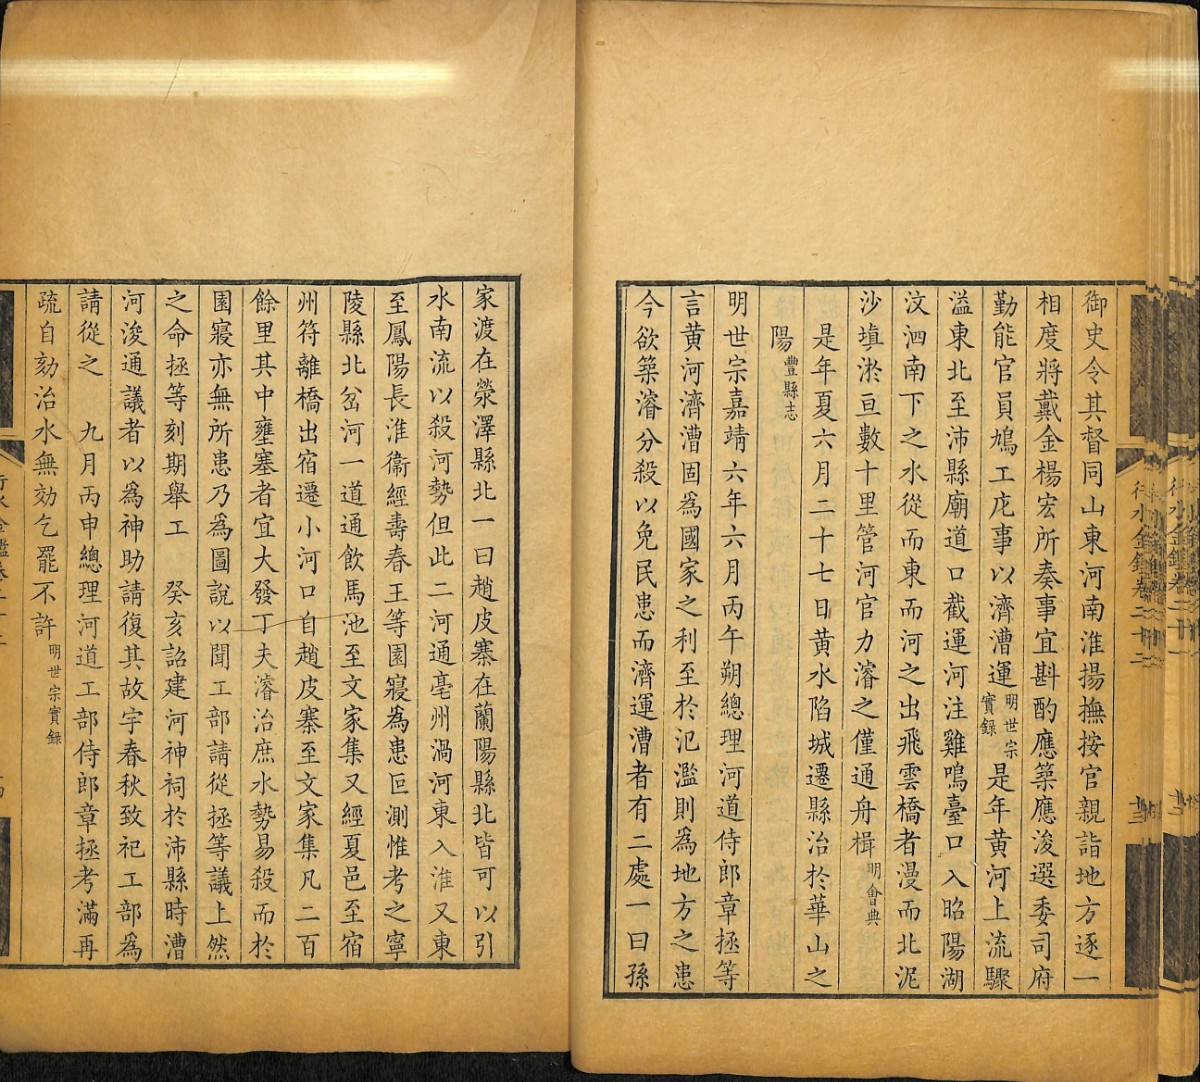 御史令其督同山東河南淮揚撫按官親詣地方逐一
相度將戴金楊宏所奏事宜斟酌應築應浚選委司府
勤能官員鳩工庀事以濟漕運明世宗實錄是年黄河上流驟
溢東北至沛縣廟道口截運河注雞鳴臺口入昭陽湖
汶泗南下之水從而東而河之出飛雲橋者漫而北泥
沙塡淤亘數十里管河官力濬之僅通舟楫明會典
是年夏六月二十七日黄水陷城遷縣治於華山之
陽豐縣志
明世宗嘉靖六年六月丙午朔總理河道侍郎章拯等
言黄河濟漕固爲國家之利至於氾濫則爲地方之患
今欲築濬分殺以免民患而濟運漕者有二處一曰孫
家渡在滎澤縣北一曰趙皮寨在蘭陽縣北皆可以引
水南流以殺河勢但此二河通亳州渦河東入淮又東
至鳳陽長淮衞經壽春王等園寢爲患叵測惟考之寧
陵縣北岔河一道通飲馬池至文家集又經夏邑至宿
州符離橋出宿遷小河口自趙皮寨至文家集凡二百
餘里其中壅塞者宜大發丁夫濬治庶水勢易殺而於
園寢亦無所患乃爲圖說以聞工部請從拯等議上然
之命拯等刻期舉工 癸亥詔建河神祠於沛縣時漕
河浚通議者以爲神助請復其故宇春秋致祀工部爲
請從之 九月丙申總理河道工部侍郎章拯考滿再
疏自劾治水無効乞罷不許明世宗實錄